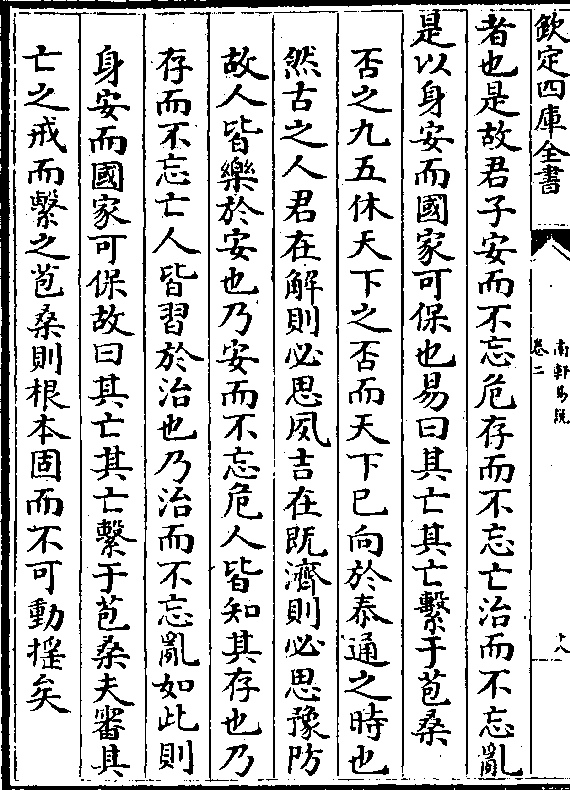 欽定四庫全書
南軒易説
卷二
十八
者也是故君子安而不忘危存而不忘亡治而不忘亂
是以身安而國家可保也易曰其亡其亡繫于苞桑
否之九五休天下之否而天下已向於泰通之時也
然古之人君在解則必思夙吉在既濟則必思豫防
故人皆樂於安也乃安而不忘危人皆知其存也乃
存而不忘亡人皆習於治也乃治而不忘亂如此則
身安而國家可保故曰其亡其亡繫于苞桑夫審其
亡之戒而繫之苞桑則根本固而不可動搖矣